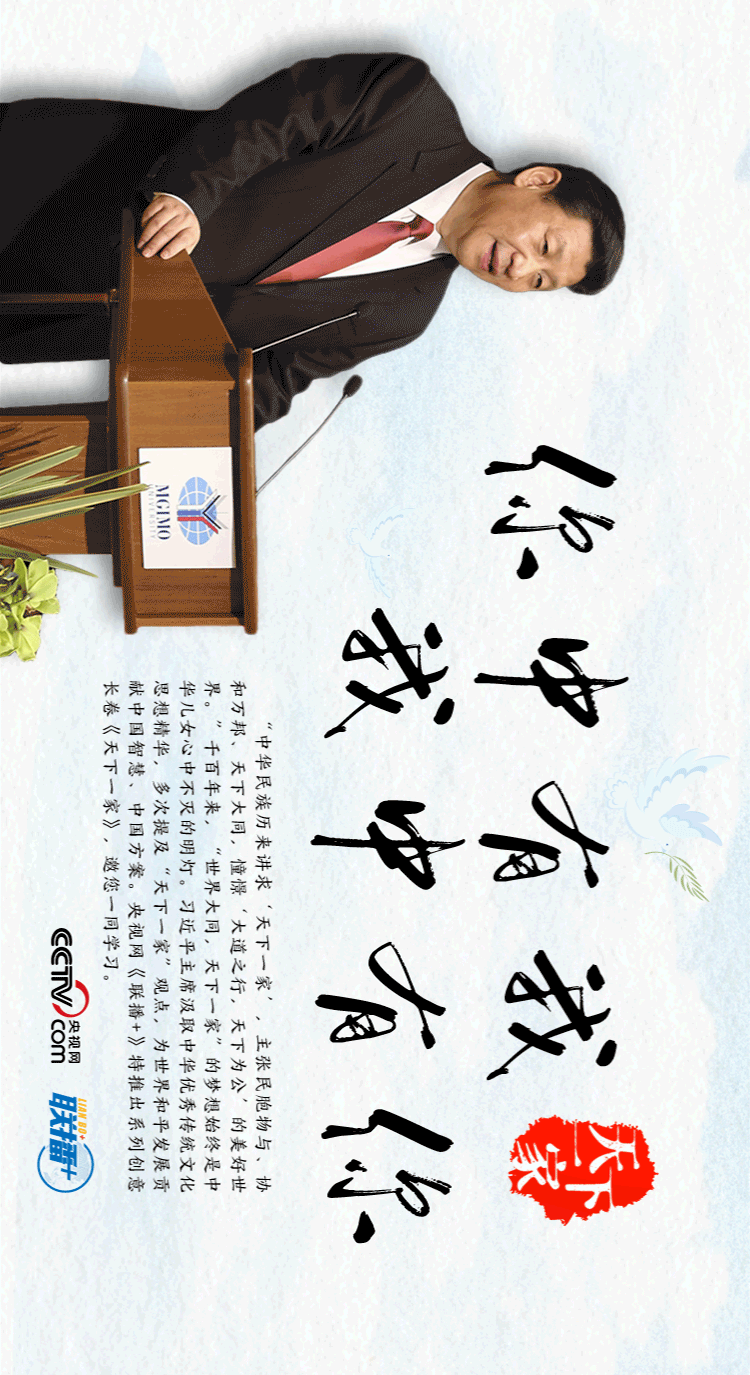 你中有我
我中有你
天下一家
“中华民族历来讲求‘天下一家’，主张民胞物与、协
和万邦、天下大同，憧憬‘大道之行，天下为公’的美好世
界。”千百年来，“世界大同，天下一家”的梦想始终是中
华儿女心中不灭的明灯。习近平主席汲取中华优秀传统文化
思想精华，多次提及“天下一家”观点，为世界和平发展贡
献中国智慧、中国方案。央视网《联播+》特推出系列创意
长卷《天下一家》，邀您一同学习。
MGIMO
UNIVERSITY
CCTV.com
央视网
LIAN BO+
联播+